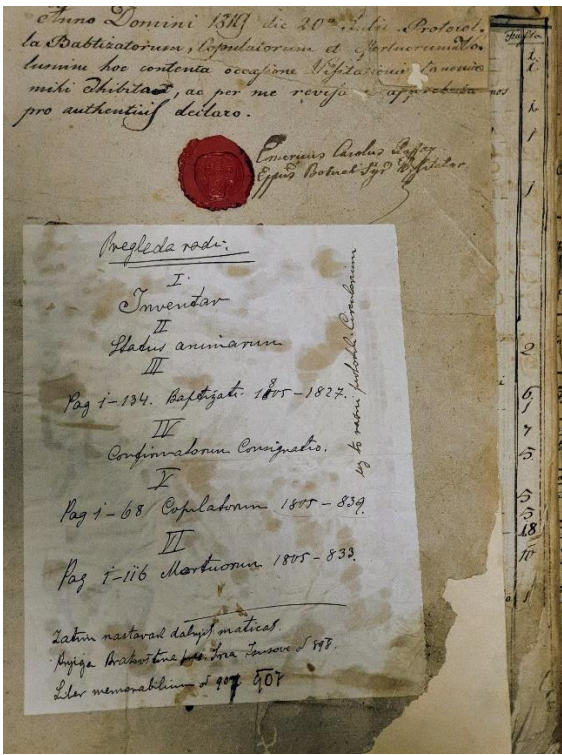 Anno Domini 1819 die 20a Julii Protocol-
la Babtizatorum, Copulatorum et Mortuorum Vo-
lumine hoc contenta occasione Visitationis Canonicae
mihi exhibita, ac per me revisa approbata
pro authenticis declaro.
Emericus Carolus Raffay
Eppus Bosnen et Syr
Pregleda radi:
I
Inventar
II
Status animarum
III
Pag 1-134. Baptizati 1805-1827.
IV
Confirmatorum Consignatio.
V
Pag 1-68 Copulatorum 1805-839
VI
Pag 1-116 Mortuorum 1805-833.
uz to razni protokol. Circularium
Zatim nastavak daljnjih matica.
Knjiga Bratovštine Srca Isusova
Liber memorabilium od 907
2
6
1
7
5
5
5
18
10